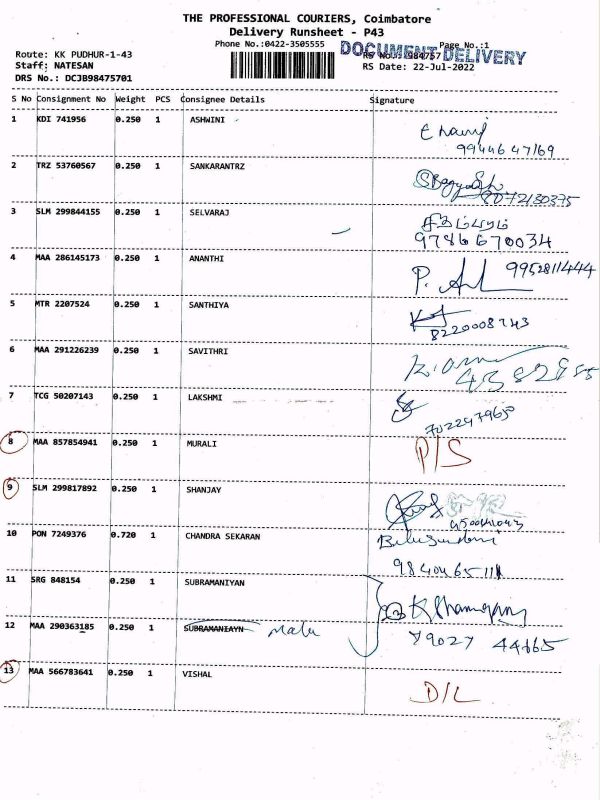 THE PROFESSIONAL COURIERS, Coimbatore
Delivery Runsheet - P43
Phone No.:0422-3505555
Page No.:1
DOCUMENT DELIVERY
Route: KK PUDHUR-1-43
RS No.: 984757
Staff: NATESAN
RS Date: 22-Jul-2022
DRS No.: DCJB98475701
S No Consignment No Weight PCS Consignee Details Signature
1 KDI 741956 0.250 1 ASHWINI
9944647169
2 TRZ 53760567 0.250 1 SANKARANTRZ
8072130375
3 SLM 299844155 0.250 1 SELVARAJ
9786670034
4 MAA 286145173 0.250 1 ANANTHI
9952811444
5 MTR 2207524 0.250 1 SANTHIYA
8220008743
6 MAA 291226239 0.250 1 SAVITHRI
7 TCG 50207143 0.250 1 LAKSHMI
8 MAA 857854941 0.250 1 MURALI P/S
9 SLM 299817892 0.250 1 SHANJAY
10 PON 7249376 0.720 1 CHANDRA SEKARAN
11 SRG 848154 0.250 1 SUBRAMANIYAN
12 MAA 290363185 0.250 1 SUBRAMANIAYN Mala
79027 44665
13 MAA 566783641 0.250 1 VISHAL D/L